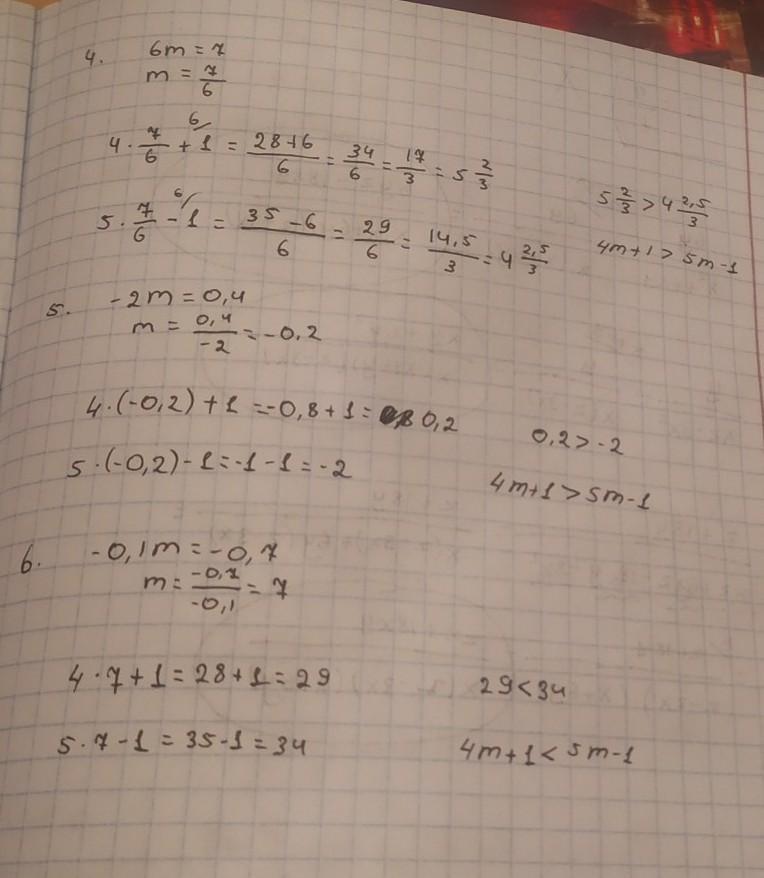 4. 6m = 7
m = 7/6
4 · 7/6 + 1 6/ = 28+6/6 = 34/6 = 17/3 = 5 2/3
5 2/3 > 4 2,5/3
5 · 7/6 - 1 6/ = 35-6/6 = 29/6 = 14,5/3 = 4 2,5/3
4m+1 > 5m-1
5. -2m = 0,4
m = 0,4/-2 = -0,2
4·(-0,2)+1 = -0,8+1 = 0,2
0,2 > -2
5·(-0,2)-1 = -1-1 = -2
4m+1 > 5m-1
6. -0,1m = -0,7
m = -0,7/-0,1 = 7
4·7+1 = 28+1 = 29
29 < 34
5·7-1 = 35-1 = 34
4m+1 < 5m-1